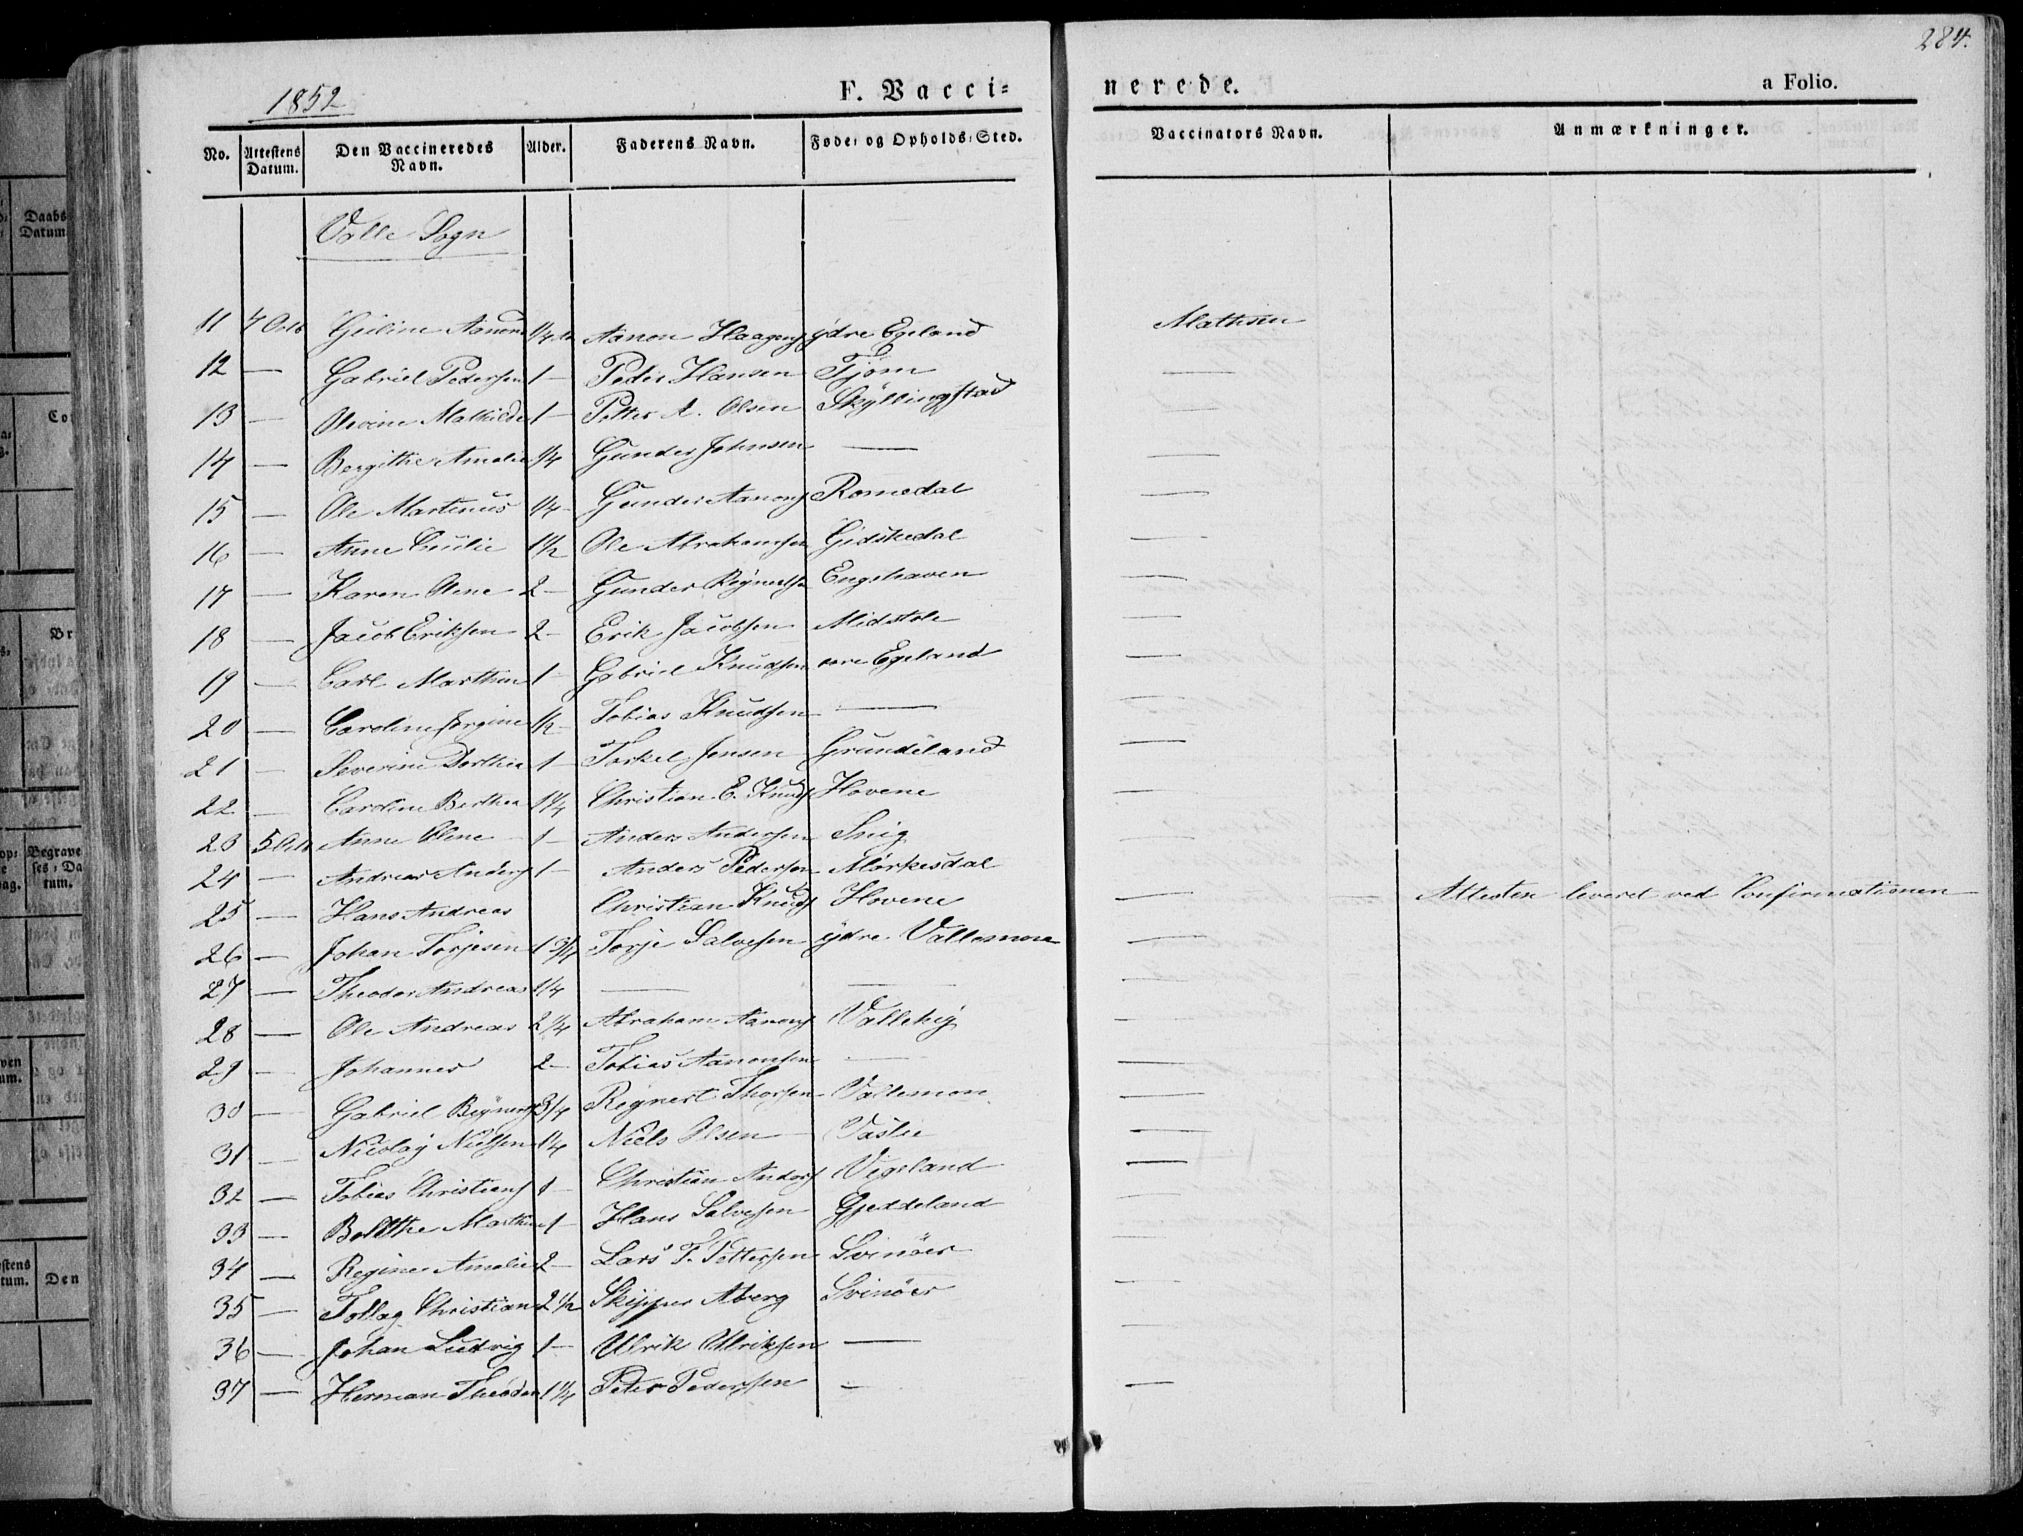 284.
1852
F. Vacci-
nerede.
a Folio.
No. Attestens Datum. Den Vaccineredes Navn. Alder. Faderens Navn. Føde- og Opholds-Sted. Vaccinators Navn. Anmærkninger.
Valle Sogn
11 4 Octb Guline Aanons 1/4 Aanon Haagens ydre Egeland Mathsen
12 — Gabriel Pedersen 1 — Peder Hansen Tjom —
13 — Olevine Mathilde 1 — Petter A. Olsen Skyllingstad —
14 — Bergithe Amalie 1/4 Gunder Johnsen — —
15 — Ole Martinus 1/4 — Gunder Aanons Romedal —
16 — Anne 1 1/2 Ole Abrahamsen Gidskedal —
17 — Karen Olene 2 — Gunder Reynertsen Engehaven —
18 — Jacob Eriksen 2 — Erik Jacobsen Midstøle —
19 — Carl Marthin 1 — Gabriel Knudsen Egeland —
20 — Caroline Jørgine 1/2 — Tobias Knudsen — —
21 — Severine Dorthea 1 — Torkel Jensen Grundeland —
22 — Caroline Berthea 1 1/4 Christian E. Knuds Hovene —
23 5 Octb Anne Olene 1 — Anders Andersen Snig —
24 — Andreas Anders 1 — Anders Pedersen Mørkesdal
25 — Hans Andreas Christian Knuds Hovene — — Attesten leveret ved Confirmationen
26 — Johan Torjesen 1 3/4 Torje Salvesen ydre Vallemoen —
27 — Theodor Andreas 1/4 — — —
28 — Ole Andreas 2 1/4 Abraham Aanons Vallehej —
29 — Johannes 2 — Tobias Aanonsen — —
30 — Gabriel Reyners 3/4 Regnert Thorsen Vallemoen —
31 — Nicolay Nielsen 1/4 Niels Olsen Vaslie —
32 — Tobias Christians 1 — Christian Anders Vigeland —
33 — Marthine 1 — Hans Salvesen Gjeddeland —
34 — Regine Amalie 2 — Lars T. Pettersen Svinöer —
35 — Tollag Christian 2 1/2 Skipper Aberg Svinöer —
36 — Johan Ludvig 1 — Ulrik Ulriksen — —
37 — Herman Theodor 1 1/4 Peter Pedersen — —